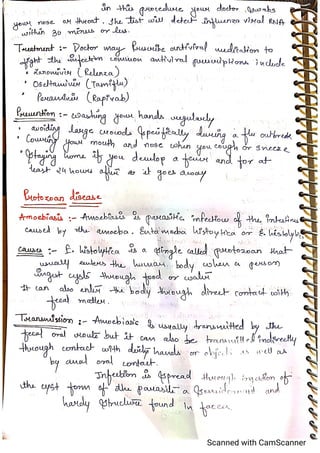 In this procedure your doctor swabs
your nose or throat. The test will detect influenza viral RNA
within 30 minus or less.
Treatment :- Doctor may prescribe antiviral medication to
fight the infection common antiviral prescriptions include
• Zanamivir (Relenza)
• Oseltamivir (Tamiflu)
• Peramivir (Rapivab)
Prevention :- washing your hands regularly
• avoiding large crowds specifically during a flu outbreak
• Covering your mouth and nose when you cough or sneeze
• Staying home if you develop a fever and for at
least 24 hours after it goes away
Protozoan disease
Amoebiasis :- Amoebiasis is parasitic infection of the intestines
caused by the amoeba. Entamoeba histolytica or E. histolytica
Causes :- E. histolytica is a single celled protozoan that
usually enters the human body when a person
ingest cysts through food or water
It can also enter the body through direct contact with
fecal matter.
Transmission :- Amoebiasis is usually transmitted by the
fecal oral route but it can also be transmitted indirectly
through contact with dirty hands or objects as well as
by anal oral contact.
Infection is spread through ingestion of
the cyst form of the parasite a and
hardy structure found in faeces.
Scanned with CamScanner